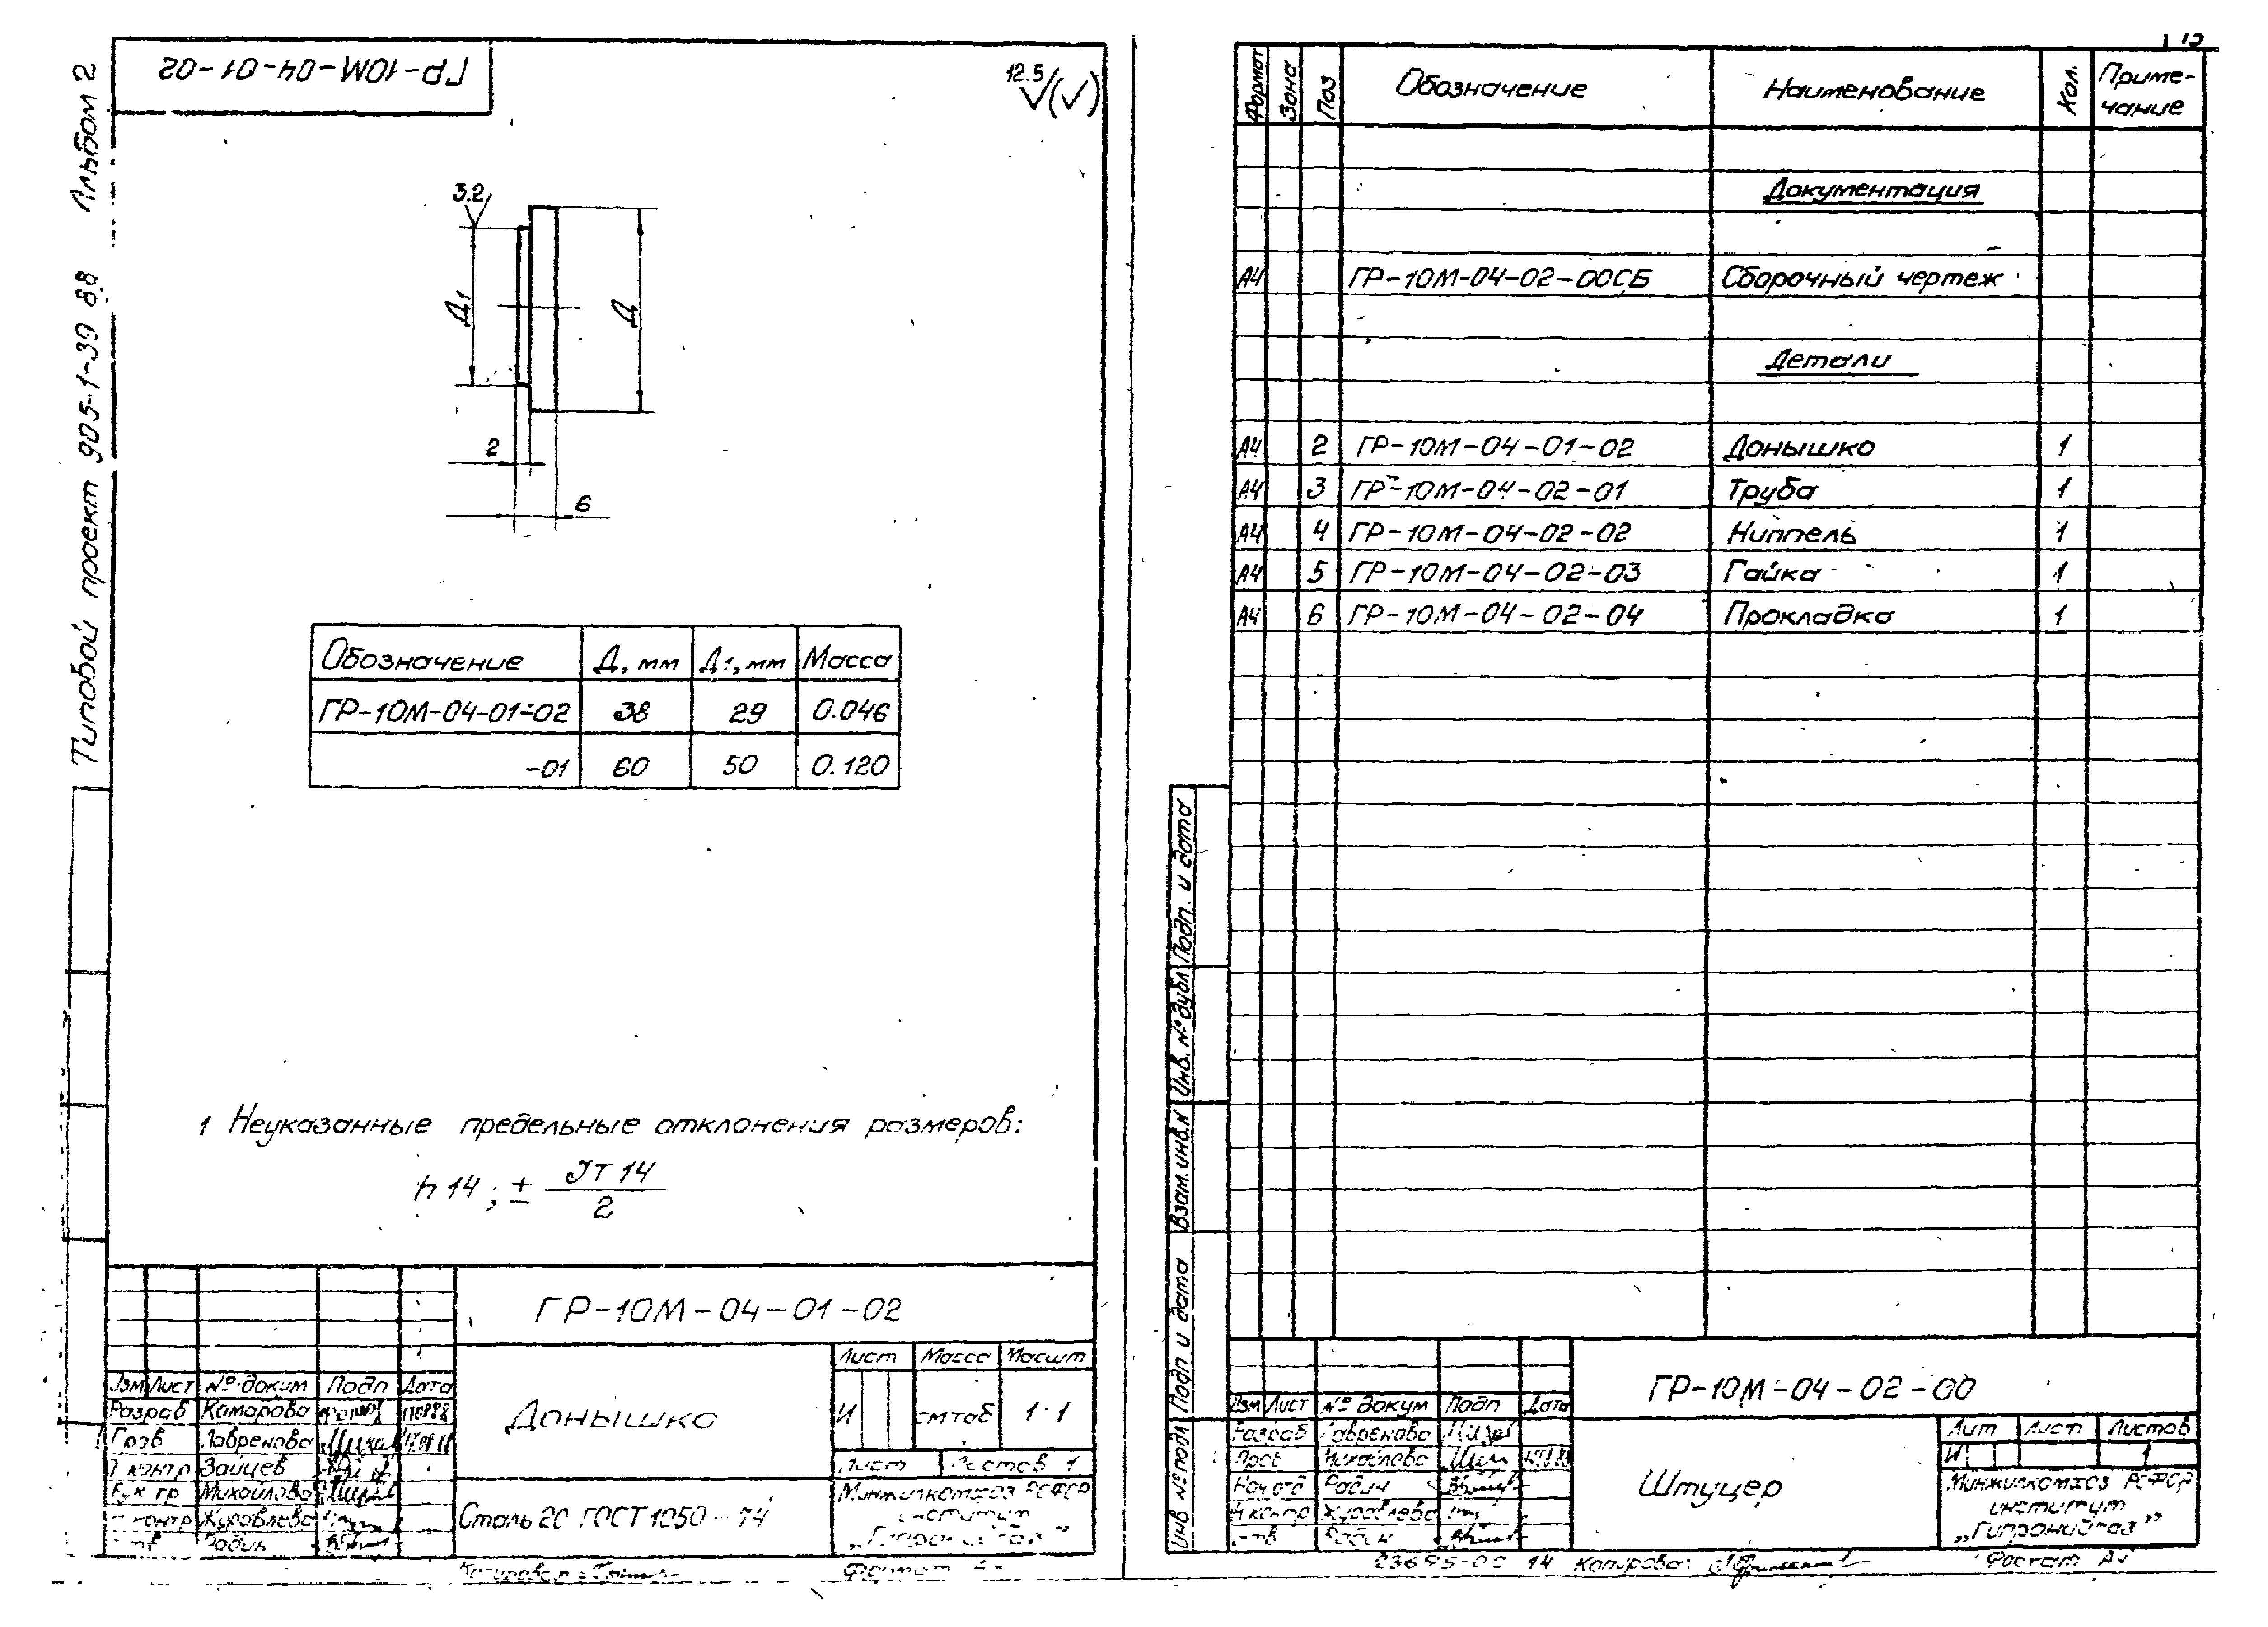 Альбом 2
Типовой проект 905-1-39 88
ГР-10М-04-01-02
12.5 (√)
3.2
Д1
Д
2
6
Обозначение Д, мм Д1, мм Масса
ГР-10М-04-01-02 38 29 0.046
-01 60 50 0.120
1 Неуказанные предельные отклонения размеров:
h14; ± IT14
2
ГР-10М-04-01-02
Лист Масса Масшт
Изм Лист № докум Подп Дата
Разраб Комарова
Донышко
И см таб 1:1
Пров Лавренова
Т контр Зайцев
Лист Листов 1
Рук гр Михайлова
Н контр Журавлева
Утв Радин
Сталь 20 ГОСТ 1050-74
Минжилкомхоз РСФСР
институт
„Гипрониигаз”
Копировал
Формат
Формат Зона Поз Обозначение Наименование Кол. Приме-
чание
Документация
А4 ГР-10М-04-02-00СБ Сборочный чертеж
Детали
А4 2 ГР-10М-04-01-02 Донышко 1
А4 3 ГР-10М-04-02-01 Труба 1
А4 4 ГР-10М-04-02-02 Ниппель 1
А4 5 ГР-10М-04-02-03 Гайка 1
А4 6 ГР-10М-04-02-04 Прокладка 1
Подп. и дата
Инв. № дубл
Взам. инв. N
Подп и дата
Инв № подл
ГР-10М-04-02-00
Изм Лист № докум Подп Дата
Разраб Лавренова
Пров Михайлова
Нач отд Радин
Н контр Журавлева
Утв Радин
Штуцер
Лит Лист Листов
И 1
Минжилкомхоз РСФСР
институт
„Гипрониигаз”
23695-02 14 Копировал
Формат А4